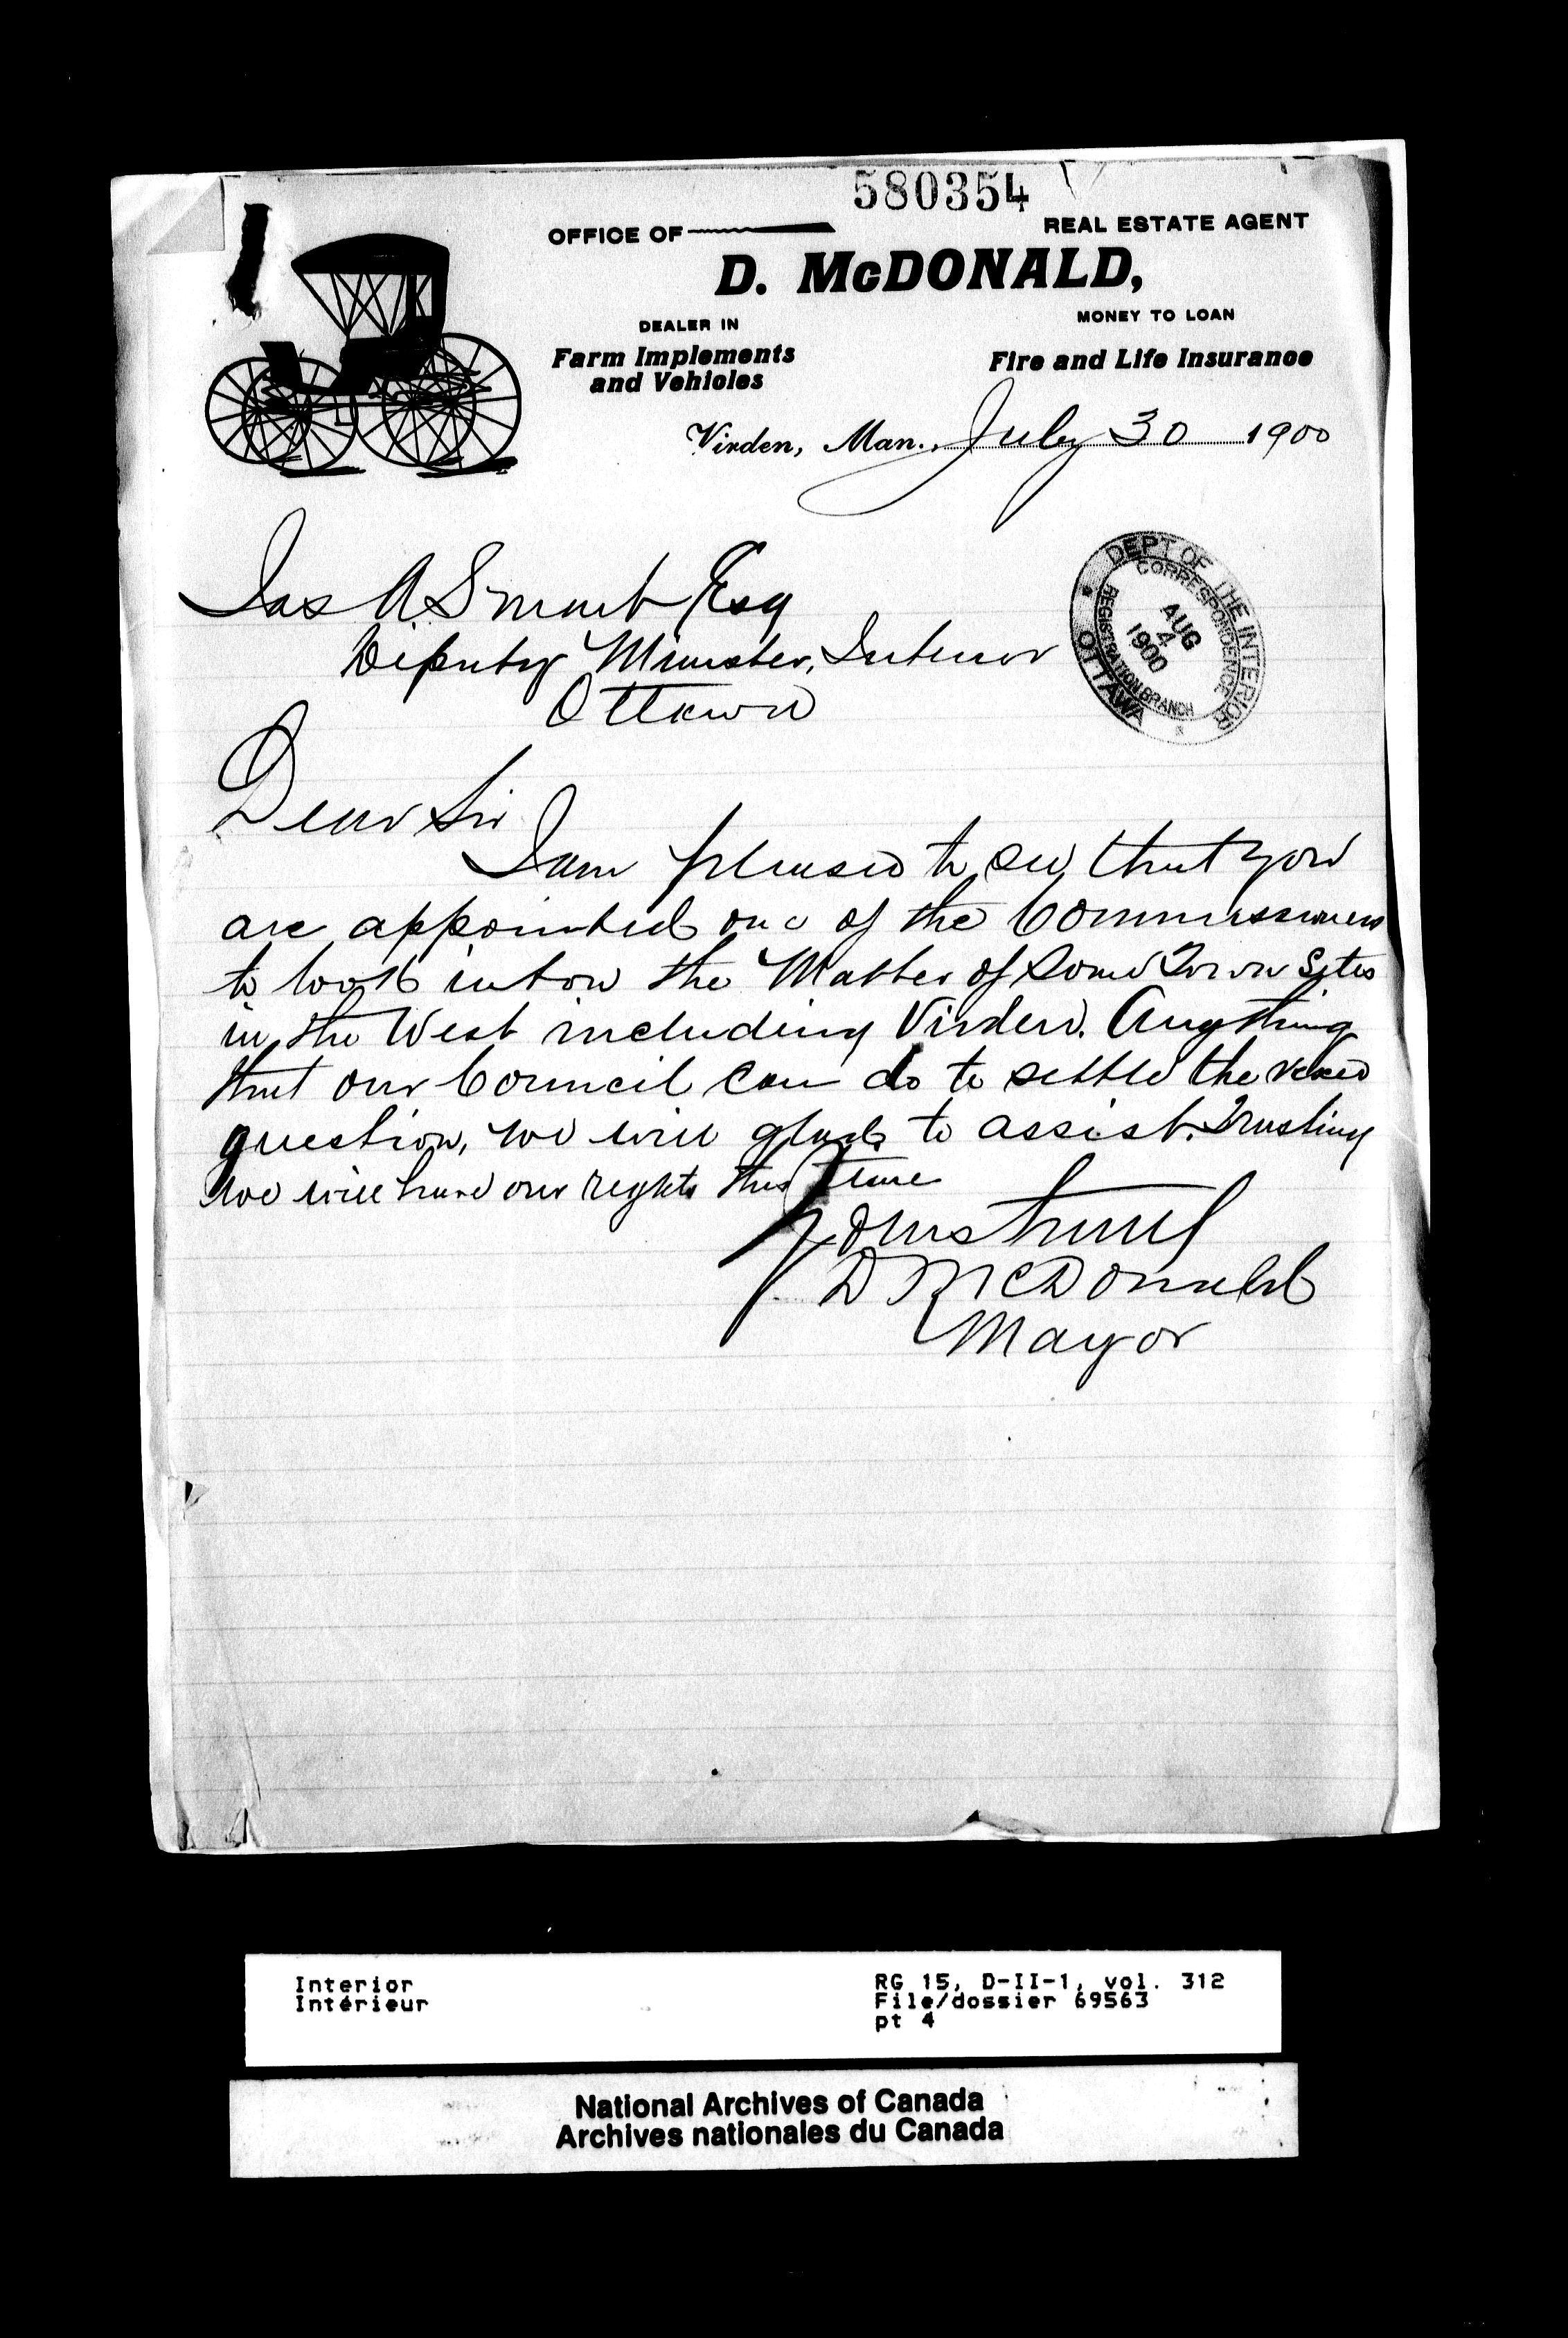 580354
OFFICE OF
REAL ESTATE AGENT
D. McDONALD,
DEALER IN
MONEY TO LOAN
Farm Implements
and Vehicles
Fire and Life Insurance
Virden, Man., July 30 1900
Jas A Smart Esq
Deputy Minister, Interior
Ottawa
DEPT OF THE INTERIOR
CORRESPONDENCE
AUG
4
1900
REGISTRATION BRANCH
OTTAWA
Dear Sir
I am pleased to see that you
are appointed one of the Commissioners
to look into the Matter of some Town Sites
in the West including Virden. Anything
that our Council can do to settle the vexed
question, we will gladly to assist. Trusting
we will have our rights this time
Yours truly
D McDonald
Mayor
Interior
Intérieur
RG 15, D-II-1, vol. 312
File/dossier 69563
pt 4
National Archives of Canada
Archives nationales du Canada